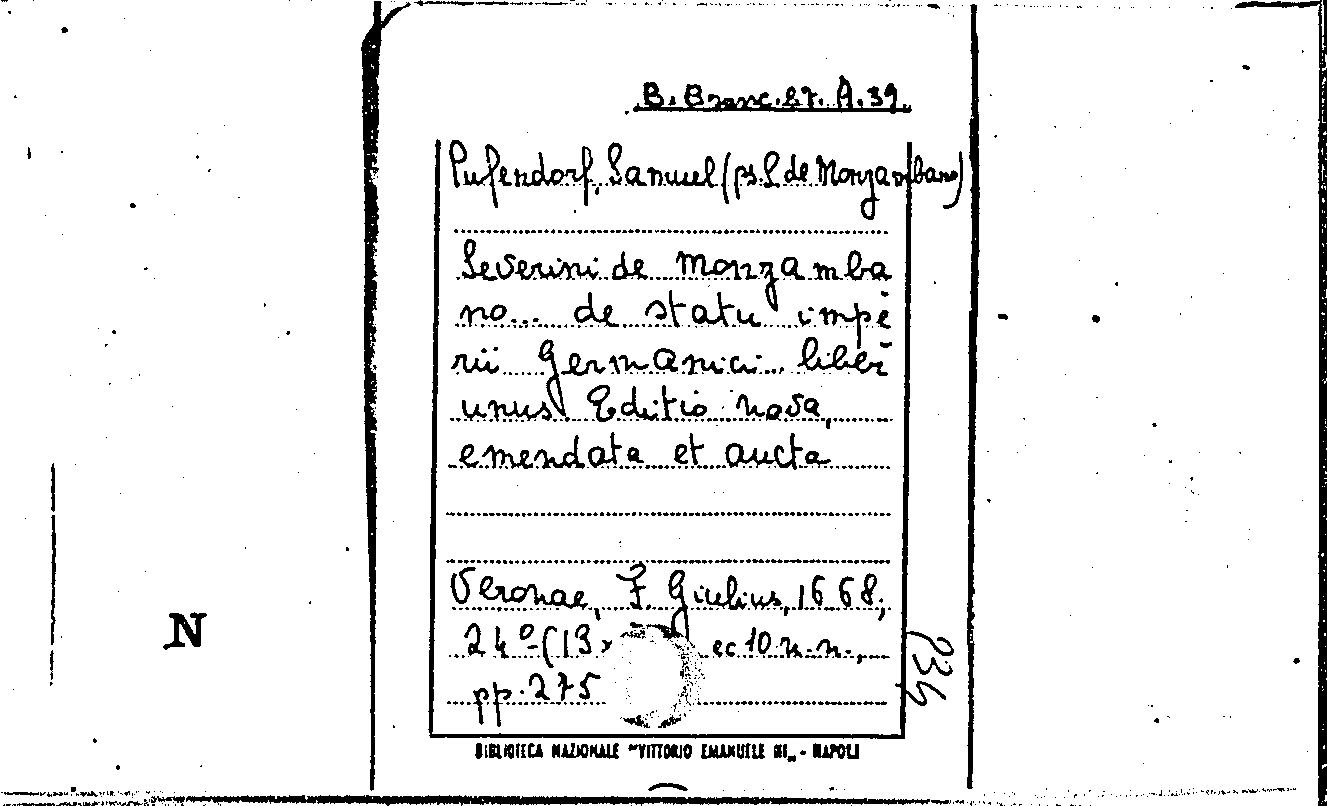 B. Branc. 27. A. 39.
Pufendorf, Samuel (ps. S. de Monzambano)
Severini de Monzamba
no... de statu impe
rii Germanici... liber
unus Editio nova,
emendata et aucta
Veronae, F. Giulius, 1668,
24° (13 cc 10 n.n.,
pp. 275
234
N
BIBLIOTECA NAZIONALE "VITTORIO EMANUELE III" - NAPOLI